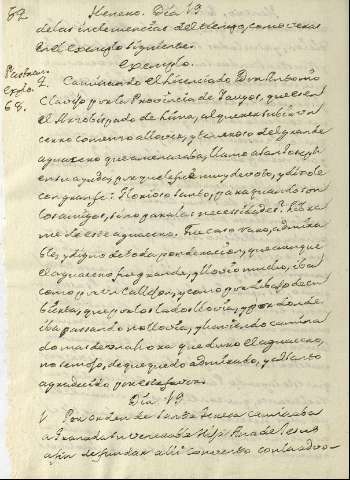 52
Henero. Dia 19
de las inclemencias del tiempo, como veras
en el exemplo siguiente.
Exemplo.
explo.
68.
2. Caminando el licenciado Don Antonio
Clavijo por la Provincia de Yauyos, que es en
el Arzobispado de Lima, al querer subir un
cerro comenzo a llover, y temeroso del grande
aguacero que amenazaba, llamo a San Joseph
en su ayuda, porque le fue muy devoto, y dixole
con gran fe: Glorioso Santo, para quando son
los amigos, sino para las necesidades? Libra
me de este aguacero. Fue caso raro, admira
ble, y digno de toda ponderacion, que aunque
el aguacero fue grande, y llovio mucho, iba
como por un callejon, y como por debajo de cu
bierta, que por los lados llovia, y por donde
iba passando no llovia, y haviendo camina
do mas de una hora que duro el aguacero,
no se mojo, de que quedo admirado, y al Santo
agradecido por este favor.
Dia 19
1 Por orden de Santa Teresa caminaba
a Granada su venerable Hija Ana de Jesus
a fin de fundar alli convento con las de